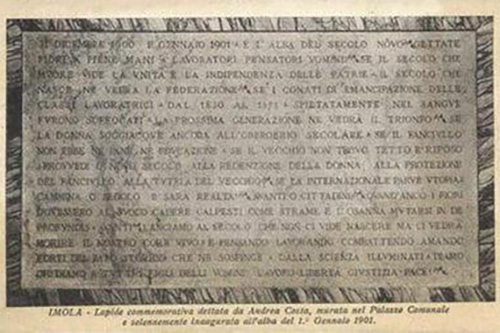 31 DICEMBRE 1900 1º GENNAIO 1901 · E L'ALBA DEL SECOLO NOVO · GETTATE
FIORI A PIENE MANI · LAVORATORI PENSATORI VOMINI · SE IL SECOLO CHE
MVORE VIDE LA VNITÀ E LA INDIPENDENZA DELLE PATRIE · IL SECOLO CHE
NASCE NE VEDRÀ LA FEDERAZIONE · SE I CONATI DI EMANCIPAZIONE DELLE
CLASSI LAVORATRICI · DAL 1830 AL 1871 · SPIETATAMENTE NEL SANGVE
FVRONO SOFFOCATI · LA PROSSIMA GENERAZIONE NE VEDRÀ IL TRIONFO · SE
LA DONNA SOGGIACQVE ANCORA ALL'OBBROBRIO SECOLARE · SE IL FANCIVLLO
NON EBBE NÈ PANE NÈ EDVCAZIONE · SE IL VECCHIO NON TROVÒ TETTO E RIPOSO
PROVVEDI O NOVO SECOLO ALLA REDENZIONE DELLA DONNA ALLA PROTEZIONE
DEL FANCIVLLO ALLA TVTELA DEL VECCHIO · SE LA INTERNAZIONALE PARVE VTOPIA
CAMMINA O SECOLO E SARÀ REALTÀ · AVANTI O CITTADINI · QVAND'ANCO I FIORI
DOVESSERO AL SVOLO CADERE CALPESTI COME STRAME E L'OSANNA MVTARSI IN DE
PROFVNDIS · AVANTI LANCIAMO AL SECOLO CHE NON CI VIDE NASCERE MA CI VEDRÀ
MORIRE IL NOSTRO CORE VIVO · E PENSANDO LAVORANDO COMBATTENDO AMANDO
FORTI DEL FATO STORICO CHE NE SOSPINGE · DALLA SCIENZA ILLVMINATI
QVELL VOMINI LAVORO LIBERTÀ GIVSTIZIA PACE
IMOLA - Lapide commemorativa dettata da Andrea Costa, murata nel Palazzo Comunale
e solennemente inaugurata all'alba del 1.º Gennaio 1901.